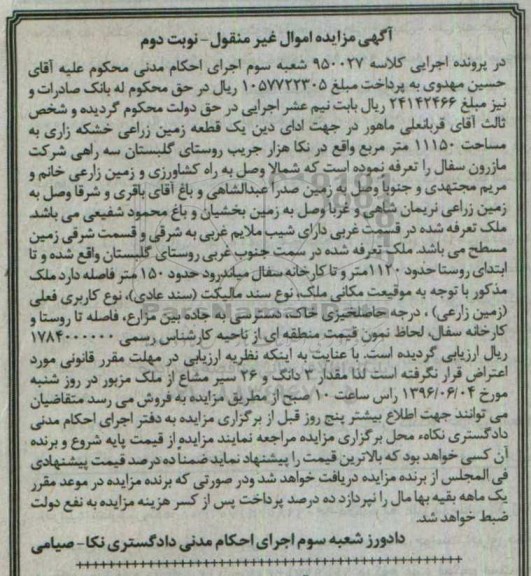 آگهی مزایده اموال غیر منقول - نوبت دوم
در پرونده اجرایی کلاسه ۹۵۰۰۲۷ شعبه سوم اجرای احکام مدنی محکوم علیه آقای
حسین مهدوی به پرداخت مبلغ ۱۰۵۷۷۲۲۳۰۵ ریال در حق محکوم له بانک صادرات و
نیز مبلغ ۲۴۱۴۲۴۶۶ ریال بابت نیم عشر اجرایی در حق دولت محکوم گردیده و شخص
ثالث آقای قربانعلی ماهور در جهت ادای دین یک قطعه زمین زراعی خشکه زاری به
مساحت ۱۱۱۵۰ متر مربع واقع در نکا هزار جریب روستای گلبستان سه راهی شرکت
مازرون سفال را تعرفه نموده است که شمالا وصل به راه کشاورزی و زمین زارعی خانم و
مریم مجتهدی و جنوبا وصل به زمین صدرا عبدالشاهی و باغ آقای باقری و شرقا وصل به
زمین زراعی نریمان شفیعی و غربا وصل به زمین بخشیان و باغ محمود شفیعی می باشد.
ملک تعرفه شده در قسمت غربی دارای شیب ملایم غربی به شرقی و قسمت شرقی زمین
مسطح می باشد. ملک تعرفه شده در سمت جنوب غربی روستای گلبستان واقع شده و تا
ابتدای روستا حدود ۱۱۲۰ متر و تا کارخانه سفال میاندرود حدود ۱۵۰ متر فاصله دارد ملک
مذکور با توجه به موقیعت مکانی ملک، نوع سند مالیکت (سند عادی)، نوع کاربری فعلی
(زمین زارعی) ، درجه حاصلخیزی خاک، دسترسی به جاده بین مزارع، فاصله تا روستا و
کارخانه سفال، لحاظ نمون قیمت منطقه ای از ناحیه کارشناس رسمی ۱۷۸۴۰۰۰۰۰۰
ریال ارزیابی گردیده است. با عنایت به اینکه نظریه ارزیابی در مهلت مقرر قانونی مورد
اعتراض قرار نگرفته است لذا مقدار ۳ دانگ و ۳۶ سیر مشاع از ملک مزبور در روز شنبه
مورخ ۱۳۹۶/۰۶/۰۴ راس ساعت ۱۰ صبح از طریق مزایده به فروش می رسد متقاضیان
می توانند جهت اطلاع بیشتر پنج روز قبل از برگزاری مزایده به دفتر اجرای احکام مدنی
دادگستری نکاء، محل برگزاری مزایده مراجعه نمایند مزایده از قیمت پایه شروع و برنده
آن کسی خواهد بود که بالاترین قیمت را پیشنهاد نماید ضمنا ده درصد قیمت پیشنهادی
فی المجلس از برنده مزایده دریافت خواهد شد ودر صورتی که برنده مزایده در موعد مقرر
یک ماهه بقیه بها مال را نپردازد ده درصد پرداخت پس از کسر هزینه مزایده به نفع دولت
ضبط خواهد شد.
دادورز شعبه سوم اجرای احکام مدنی دادگستری نکا - صیامی